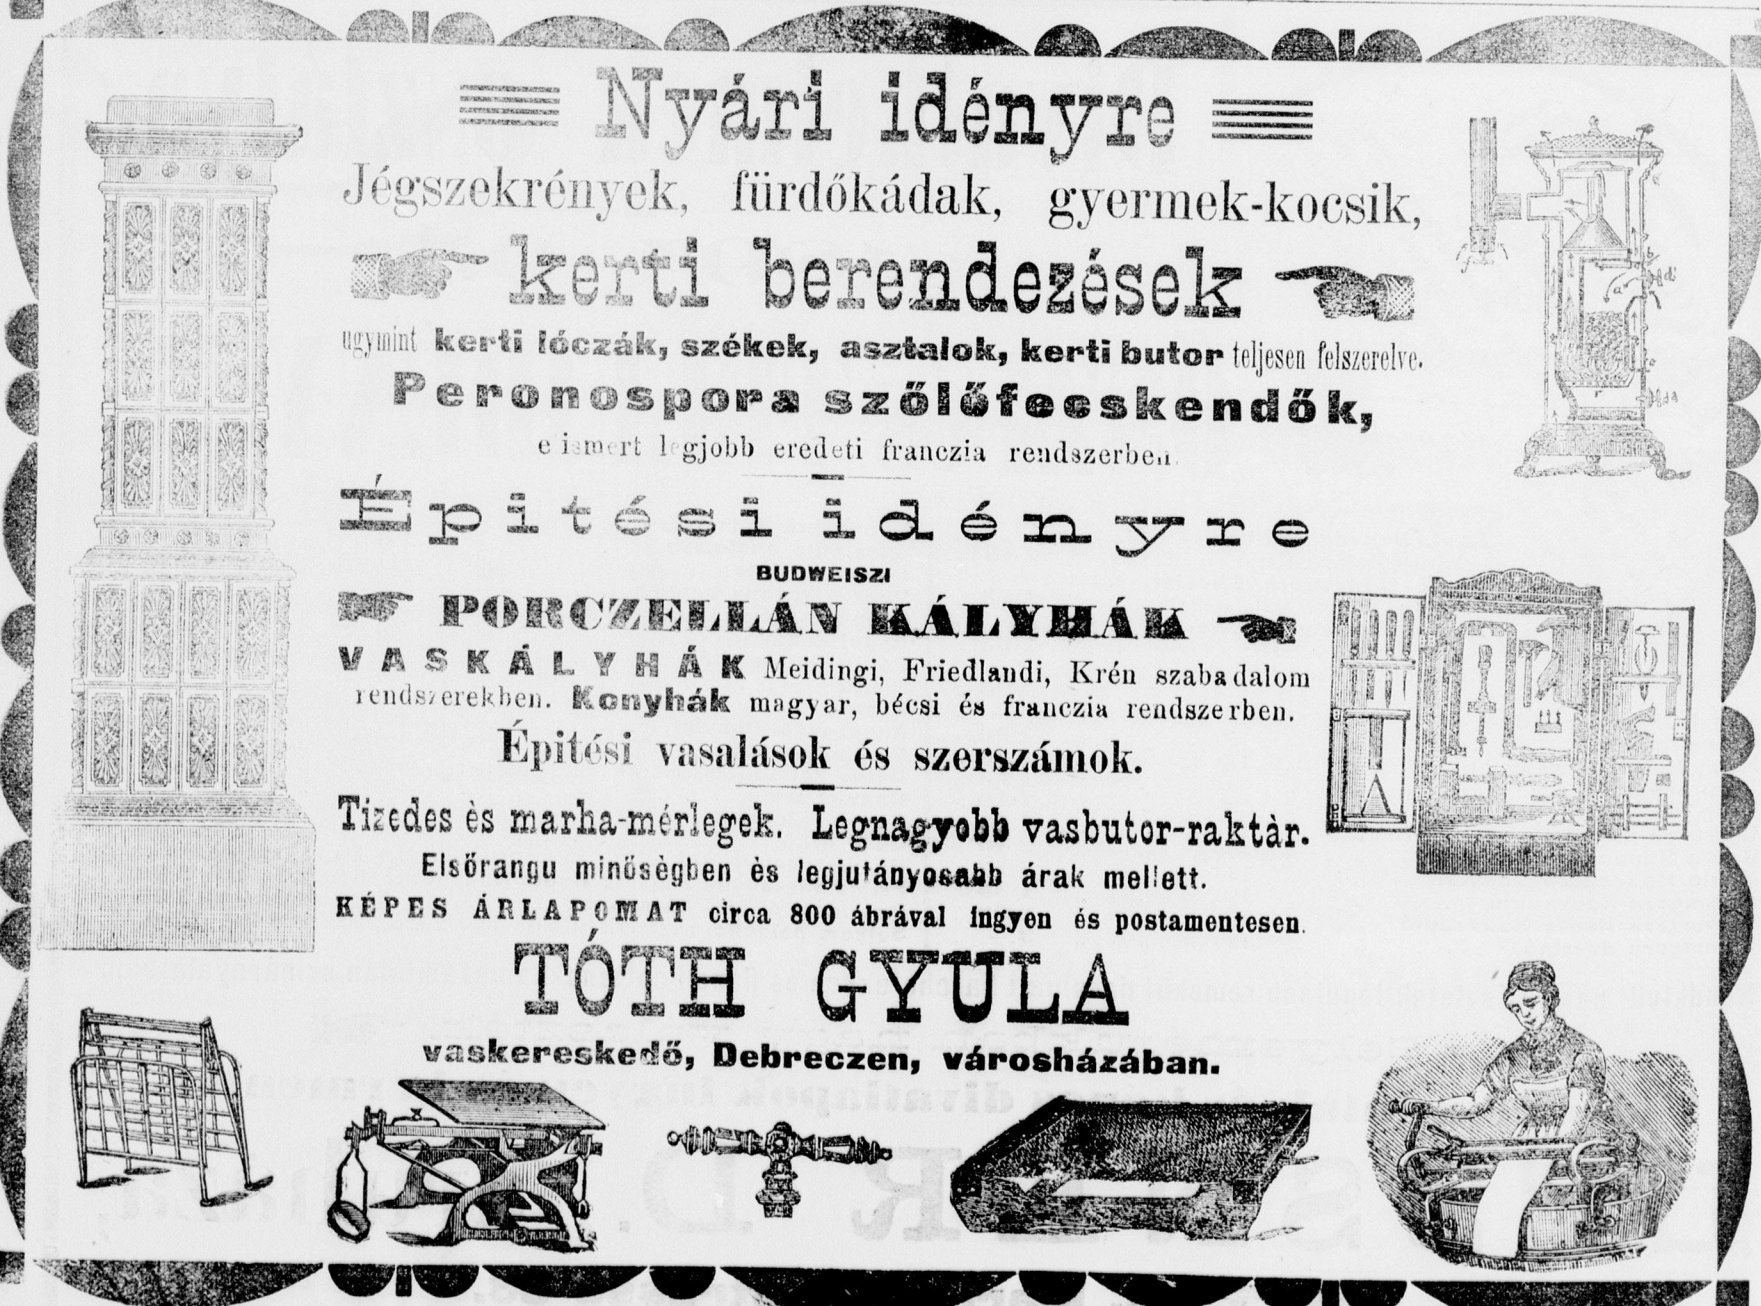 Nyári idényre
Jégszekrények, fürdőkádak, gyermek-kocsik,
kerti berendezések
ugymint kerti lóczák, székek, asztalok, kerti butor teljesen felszerelve.
Peronospora szőlőfecskendők,
e ismert legjobb eredeti franczia rendszerben.
Épitési idényre
BUDWEISZI
PORCZELLÁN KÁLYHÁK
VASKÁLYHÁK Meidingi, Friedlandi, Krén szabadalom
rendszerekben. Konyhák magyar, bécsi és franczia rendszerben.
Épitési vasalások és szerszámok.
Tizedes ès marha-mérlegek. Legnagyobb vasbutor-raktàr.
Elsőrangu minősègben ès legjutányosabb árak mellett.
KÉPES ÁRLAPOMAT circa 800 ábrával ingyen és postamentesen.
TÓTH GYULA
vaskereskedő, Debreczen, városházában.